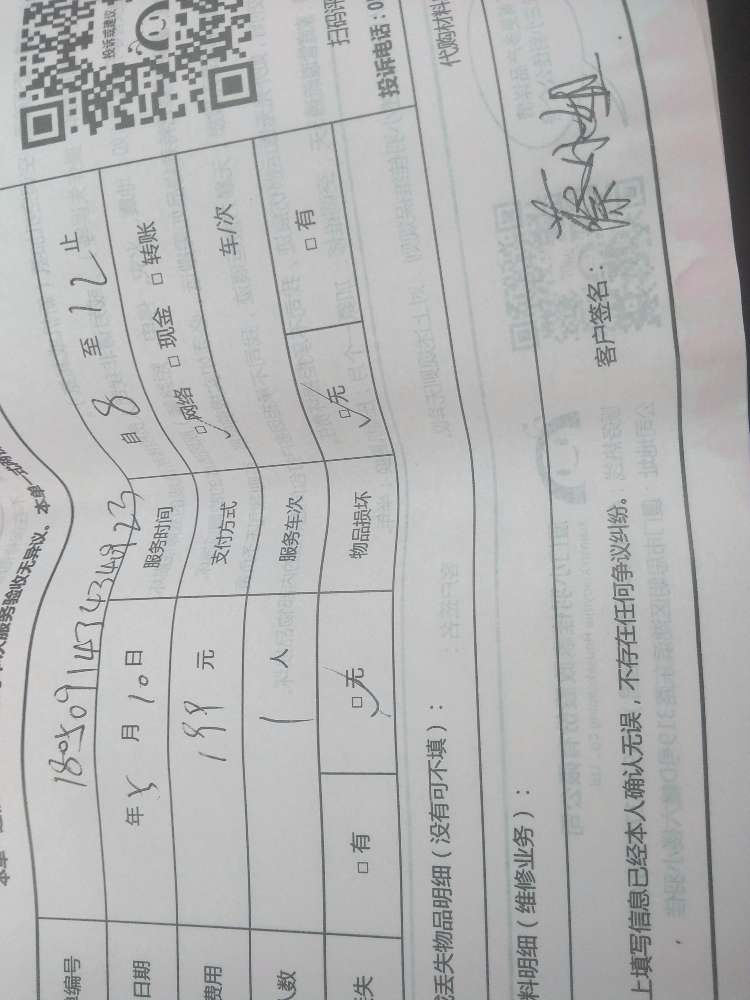 投诉或建议
扫码评
投诉电话：0
本次服务验收无异议。本单一式两
单编号 180509143434923
日期 年 5 月 10 日 服务时间 自 8 至 12 止
费用 199 元 支付方式 □网络 □现金 □转账
人数 1 人 服务车次 车/次
丢失 □有 □无 物品损坏 □无 □有
或丢失物品明细（没有可不填）：
代购材料
料明细（维修业务）：
上填写信息已经本人确认无误，不存在任何争议纠纷。 客户签名：